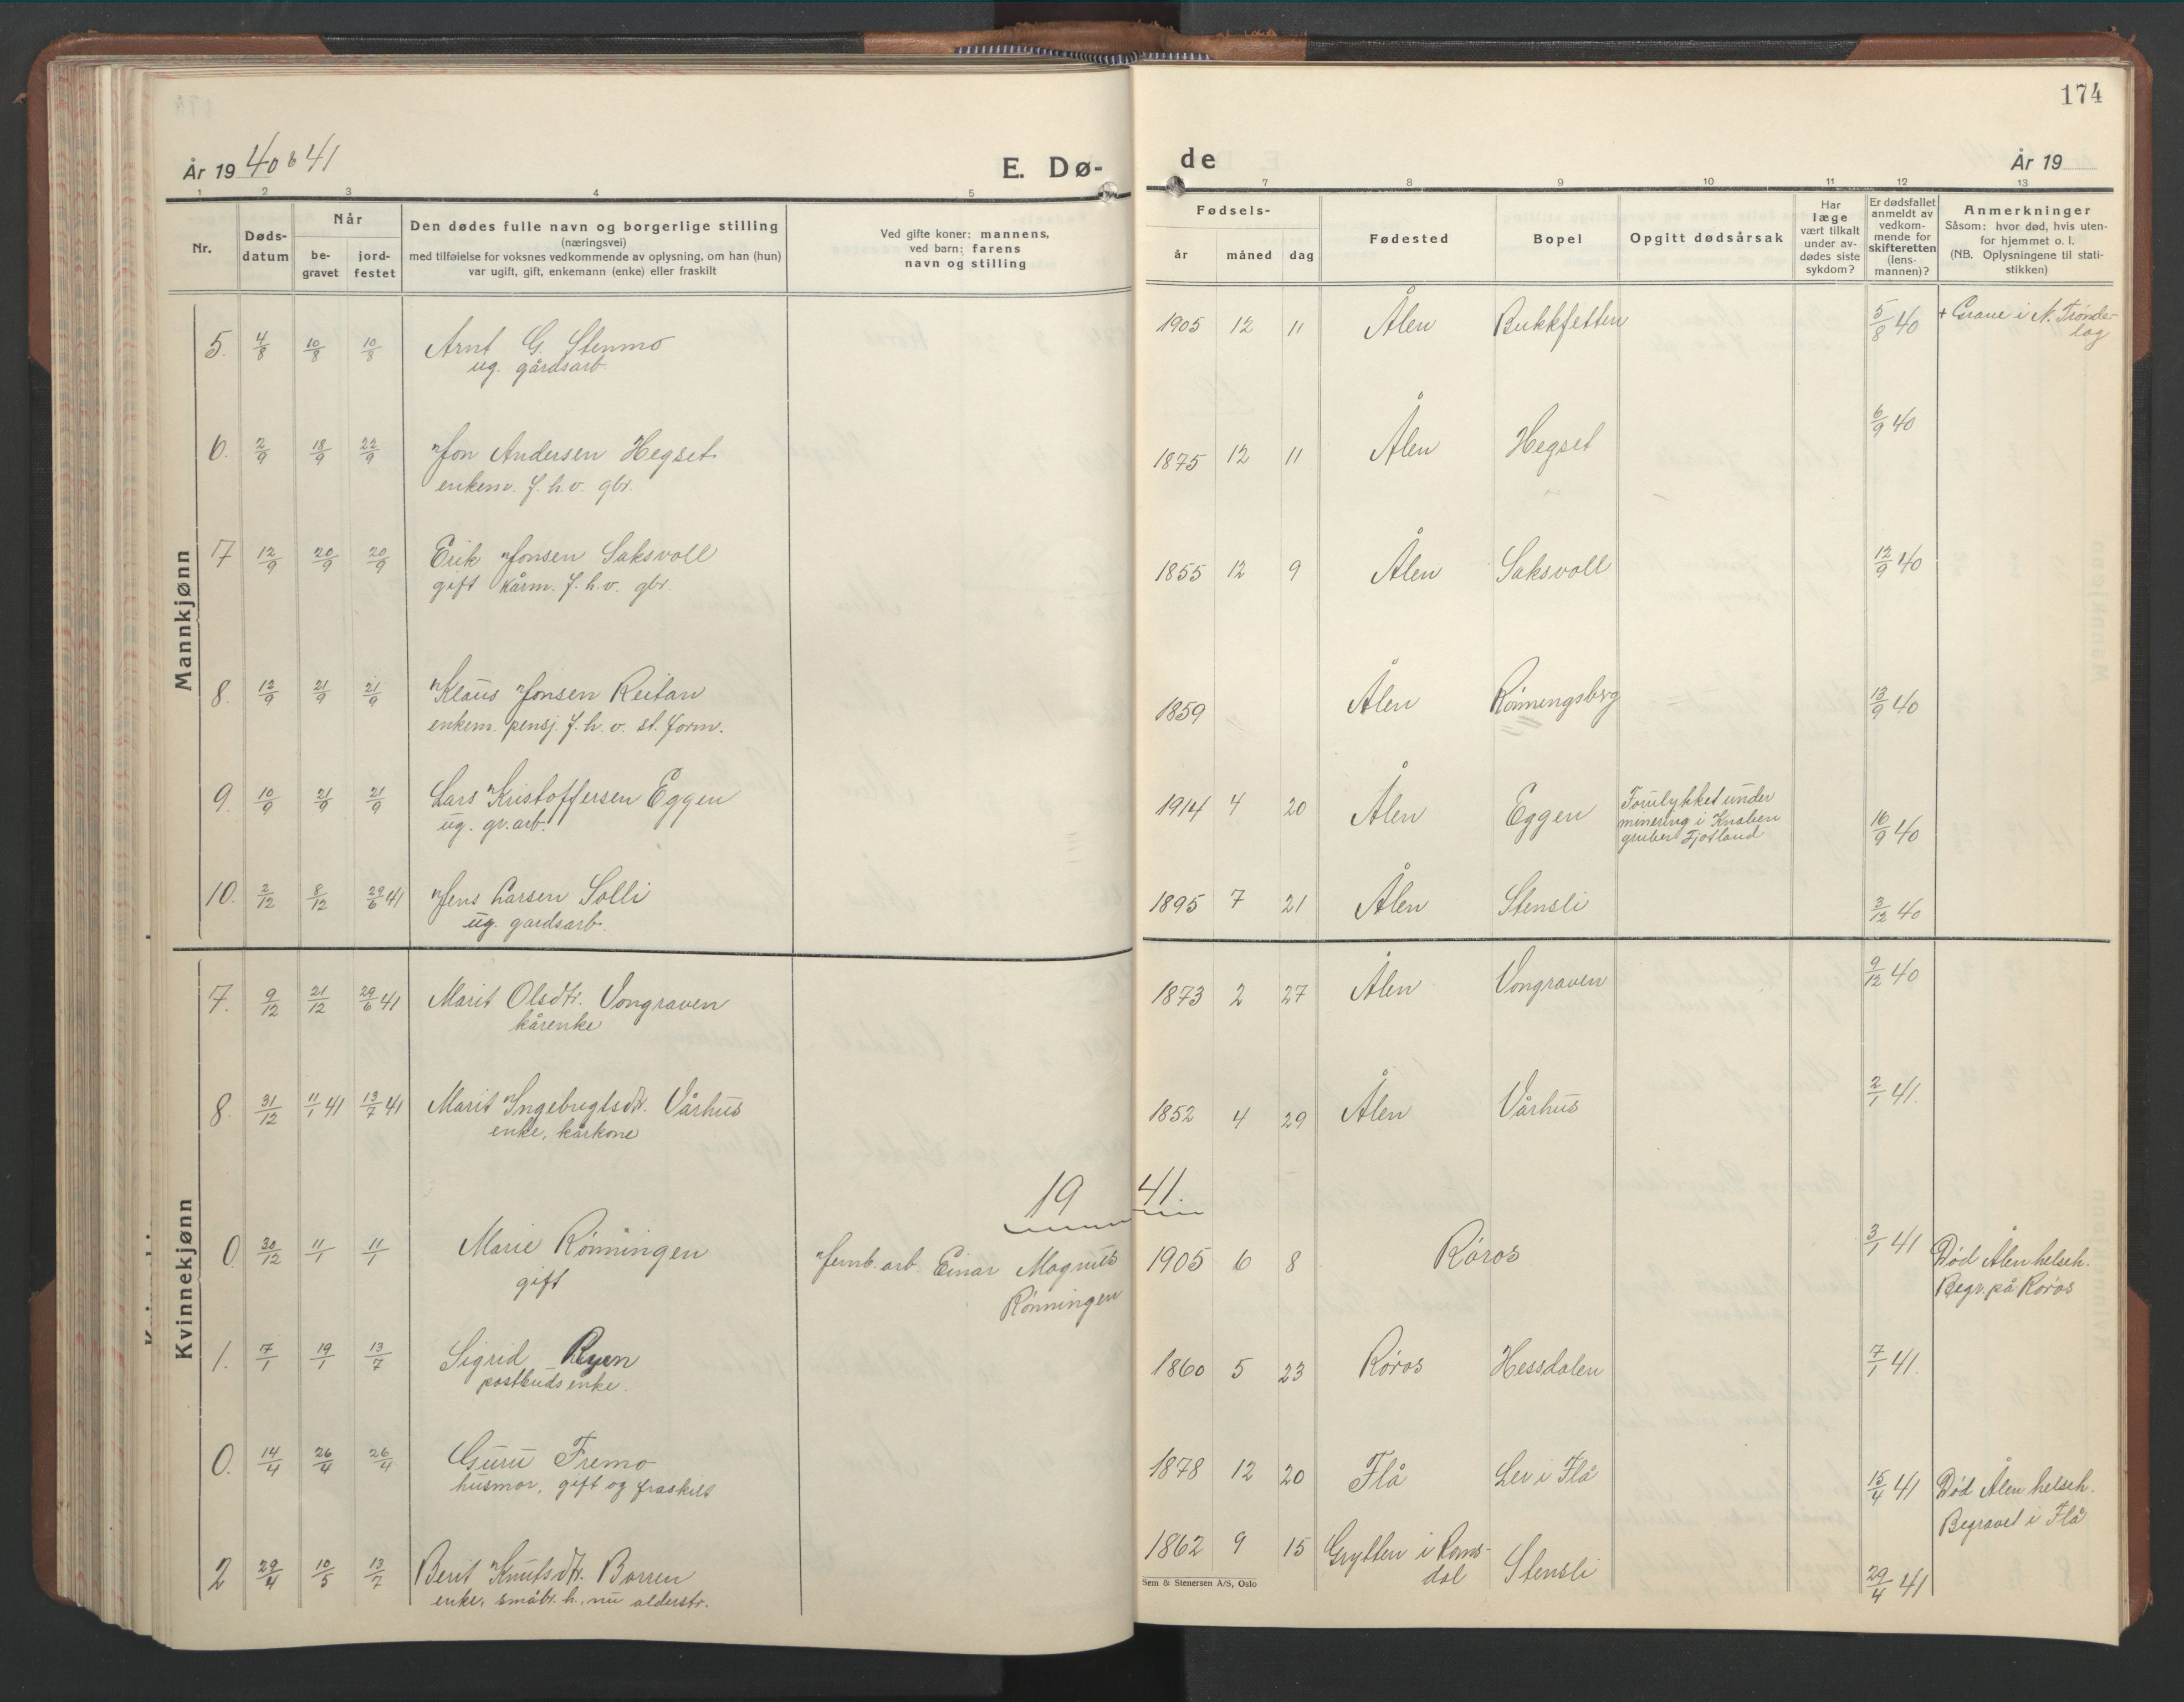 174
År 1940 & 41
E. Dø-
de
År 19
1 2 3 4 5 7 8 9 10 11 12 13
Nr.
Døds-
datum
Når
be-
gravet
jord-
festet
Den dødes fulle navn og borgerlige stilling
(næringsvei)
med tilføielse for voksnes vedkommende av oplysning, om han (hun)
var ugift, gift, enkemann (enke) eller fraskilt
Ved gifte koner: mannens,
ved barn: farens
navn og stilling
Fødsels-
år måned dag
Fødested
Bopel
Opgitt dødsårsak
Har
læge
vært tilkalt
under av-
dødes siste
sykdom?
Er dødsfallet
anmeldt av
vedkom-
mende for
skifteretten
(lens-
mannen)?
Anmerkninger
Såsom: hvor død, hvis uten-
for hjemmet o. l.
(NB. Oplysningene til stati-
stikken)
Mannkjønn
5. 4/8 10/8 10/8 Arnt G. Stenmo 1905 12 11 Ålen Bukkfetten 5/8 40 + Grane i N. Trønde-
lag
ug. gårdsarb.
6. 2/9 18/9 22/9 Jon Andersen Hegset 1875 12 11 Ålen Hegset 6/9 40
enkem. f. h. v. gbr.
7 12/9 20/9 20/9 Erik Jonsen Saksvoll 1855 12 9 Ålen Saksvoll 12/9 40
gift kårm. f. h. v. gbr.
8. 12/9 21/9 21/9 Klaus Jonsen Reitan 1859 Ålen Rønningsberg 13/9 40
enkem. pensj. f. h. v. st. form.
9. 10/9 21/9 21/9 Lars Kristoffersen Eggen 1914 4 20 Ålen Eggen Forulykket under
minering i Knaben
gruber Fjotland 16/9 40
ug. gr. arb.
10. 2/12 8/12 29/6 41 Jens Larsen Solli 1895 7 21 Ålen Stensli 3/12 40
ug. gardsarb.
Kvinnekjønn
7. 9/12 21/12 29/6 41 Marit Olsdtr. Vongraven 1873 2 27 Ålen Vongraven 9/12 40
kårenke
8. 31/12 11/1 41 13/7 41 Marit Ingebrigtsdtr. Vårhus 1852 4 29 Ålen Vårhus 2/1 41.
enke, kårkone
1941.
0 30/12 11/1 11/1 Marie Rønningen Jernb. arb. Einar Magnus
Rønningen 1905 6 8 Røros 3/1 41 Død Ålen helseh.
Begr. på Røros
gift
1. 7/1 19/1 13/7 Sigrid Ryen 1860 5 23 Røros Hessdalen 7/1 41.
postbuds enke.
0. 14/4 26/4 26/4 Guru Fremo 1878 12 20 Flå Ler i Flå 15/4 41 Død Ålen helseh.
Begravet i Flå
husmor, gift og fraskilt
2 29/4 10/5 13/7 Berit Knutsdtr. Borren 1862 9 15 Grytten i Roms-
dal Stensli 29/4 41
enke, småbr. h., nu alderstr.
Sem & Stenersen A/S, Oslo